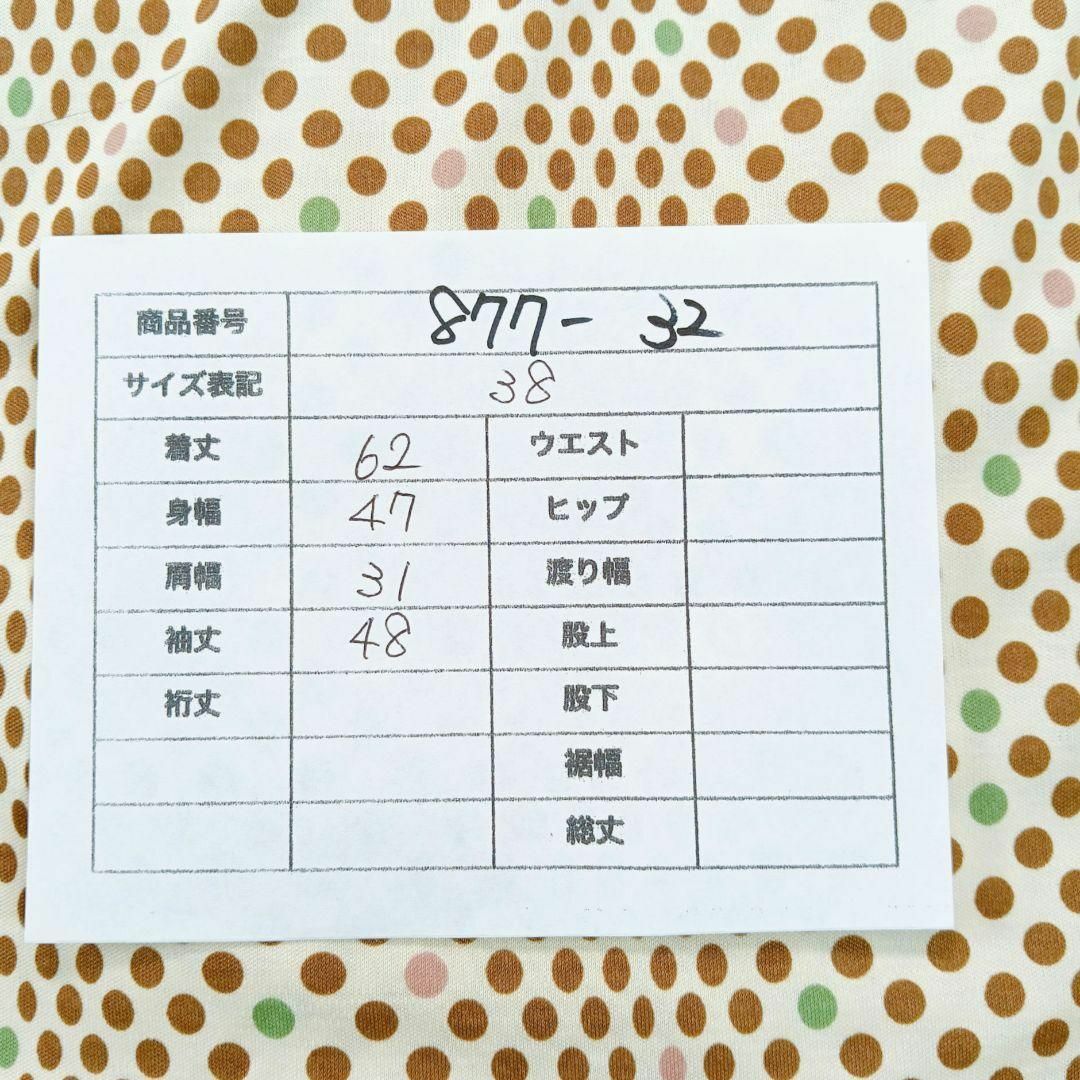 商品番号 877- 32
サイズ表記 38
着丈 62 ウエスト
身幅 47 ヒップ
肩幅 31 渡り幅
袖丈 48 股上
裄丈 股下
裾幅
総丈